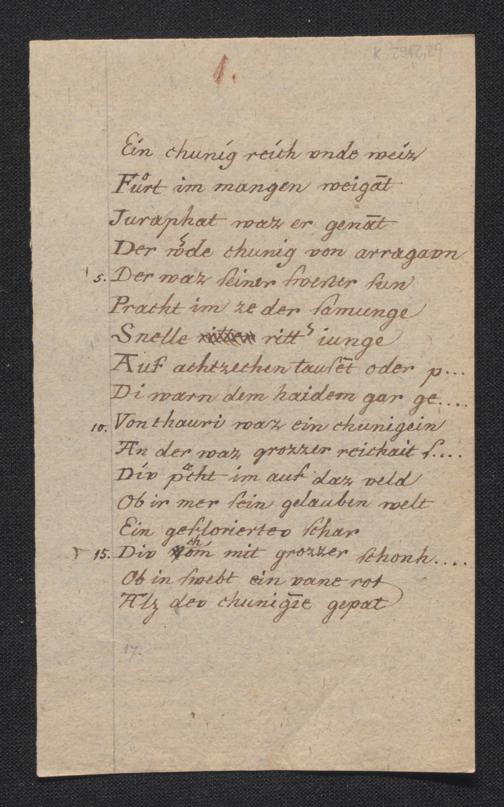 1.
K 2912,29
Ein chunig reich vnde weiz
Fůrt im mangen weigāt
Juraphat waz er genāt
Der wͦde chunig von arragavn
5. Der waz seiner swester sun
Pracht im ze der samunge
Snelle ritt' iunge
Auf achtzechen tausēt oder p...
Di warn dem haidem gar ge....
10. Von thauri waz ein chunigein
An der waz grozzer reichait s....
Div pͦcht im auf daz veld
Ob ir mer sein gelauben welt
Ein gefloriertev schar
15. Div chom mit grozzer schonh....
Ob in swebt ein vane rot
Alz dev chunigīe gepat
17.